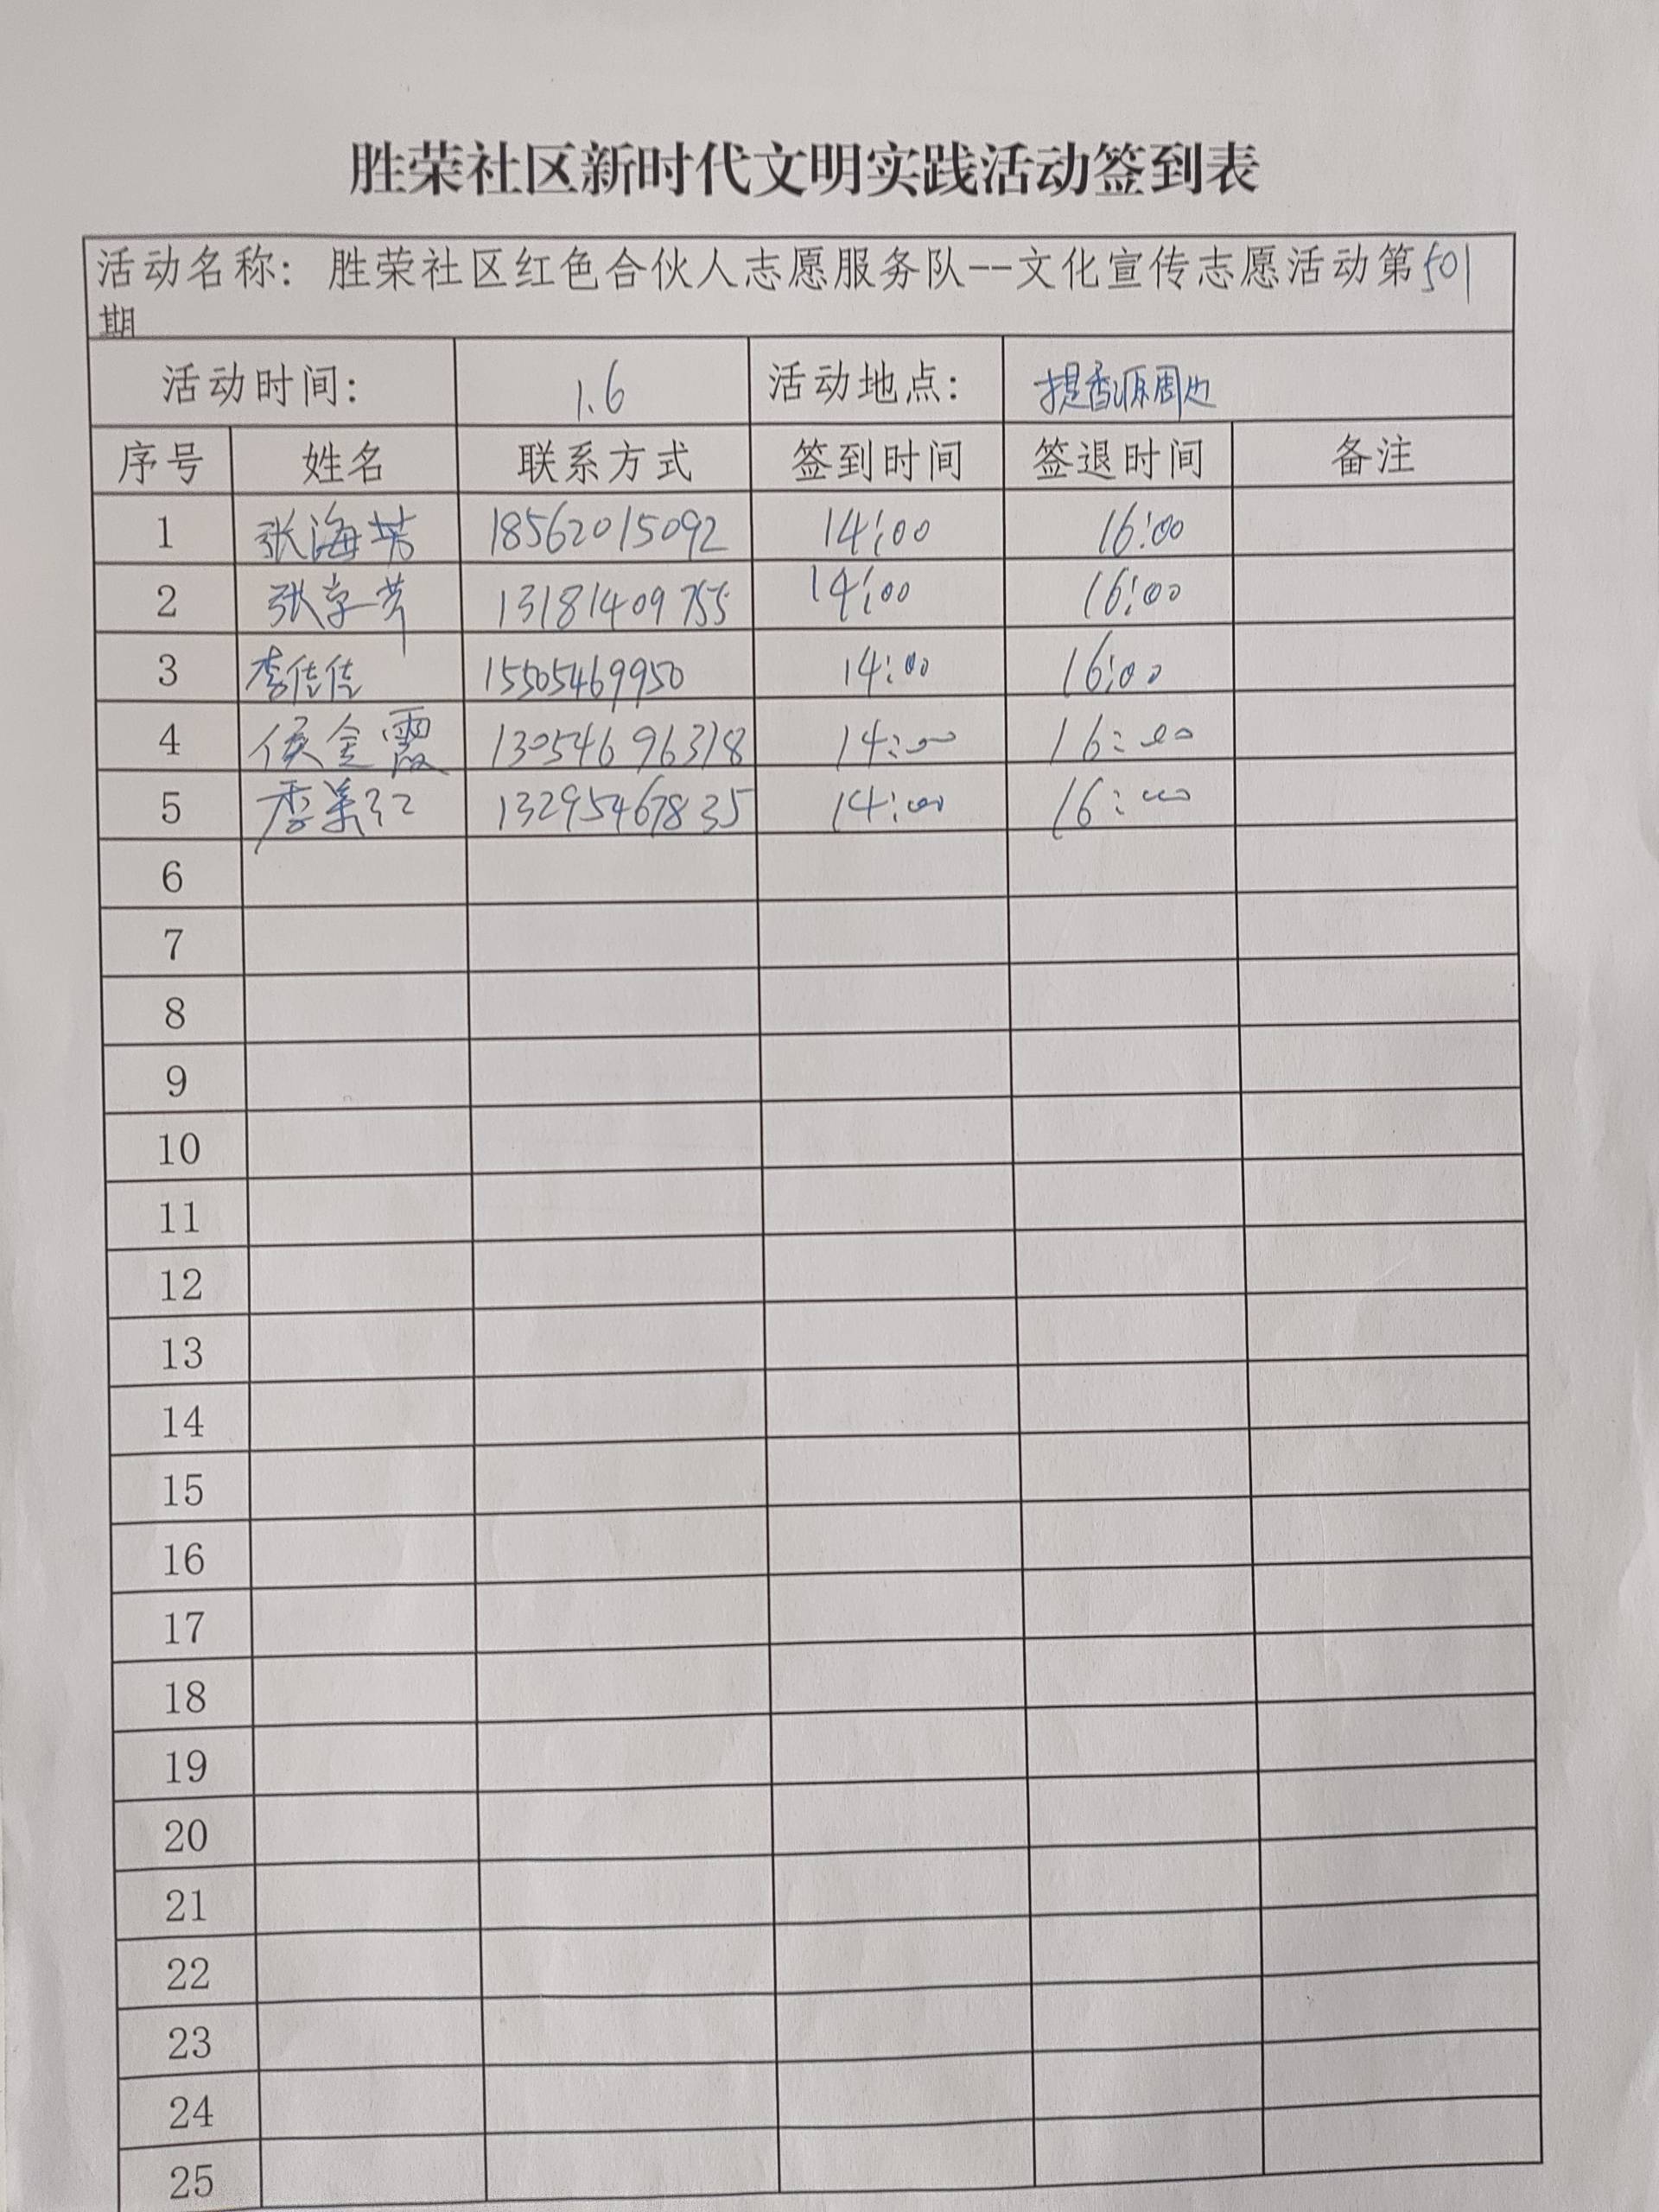 胜荣社区新时代文明实践活动签到表
活动名称：胜荣社区红色合伙人志愿服务队--文化宣传志愿活动第501
期
活动时间： 1.6 活动地点： 提香源周边
序号 姓名 联系方式 签到时间 签退时间 备注
1 张海芳 18562015092 14:00 16:00
2 张京芹 13181409755 14:00 16:00
3 李佳佳 15505469950 14:00 16:00
4 侯金霞 13054696318 14:00 16:00
5 季美红 13295467835 14:00 16:00
6
7
8
9
10
11
12
13
14
15
16
17
18
19
20
21
22
23
24
25